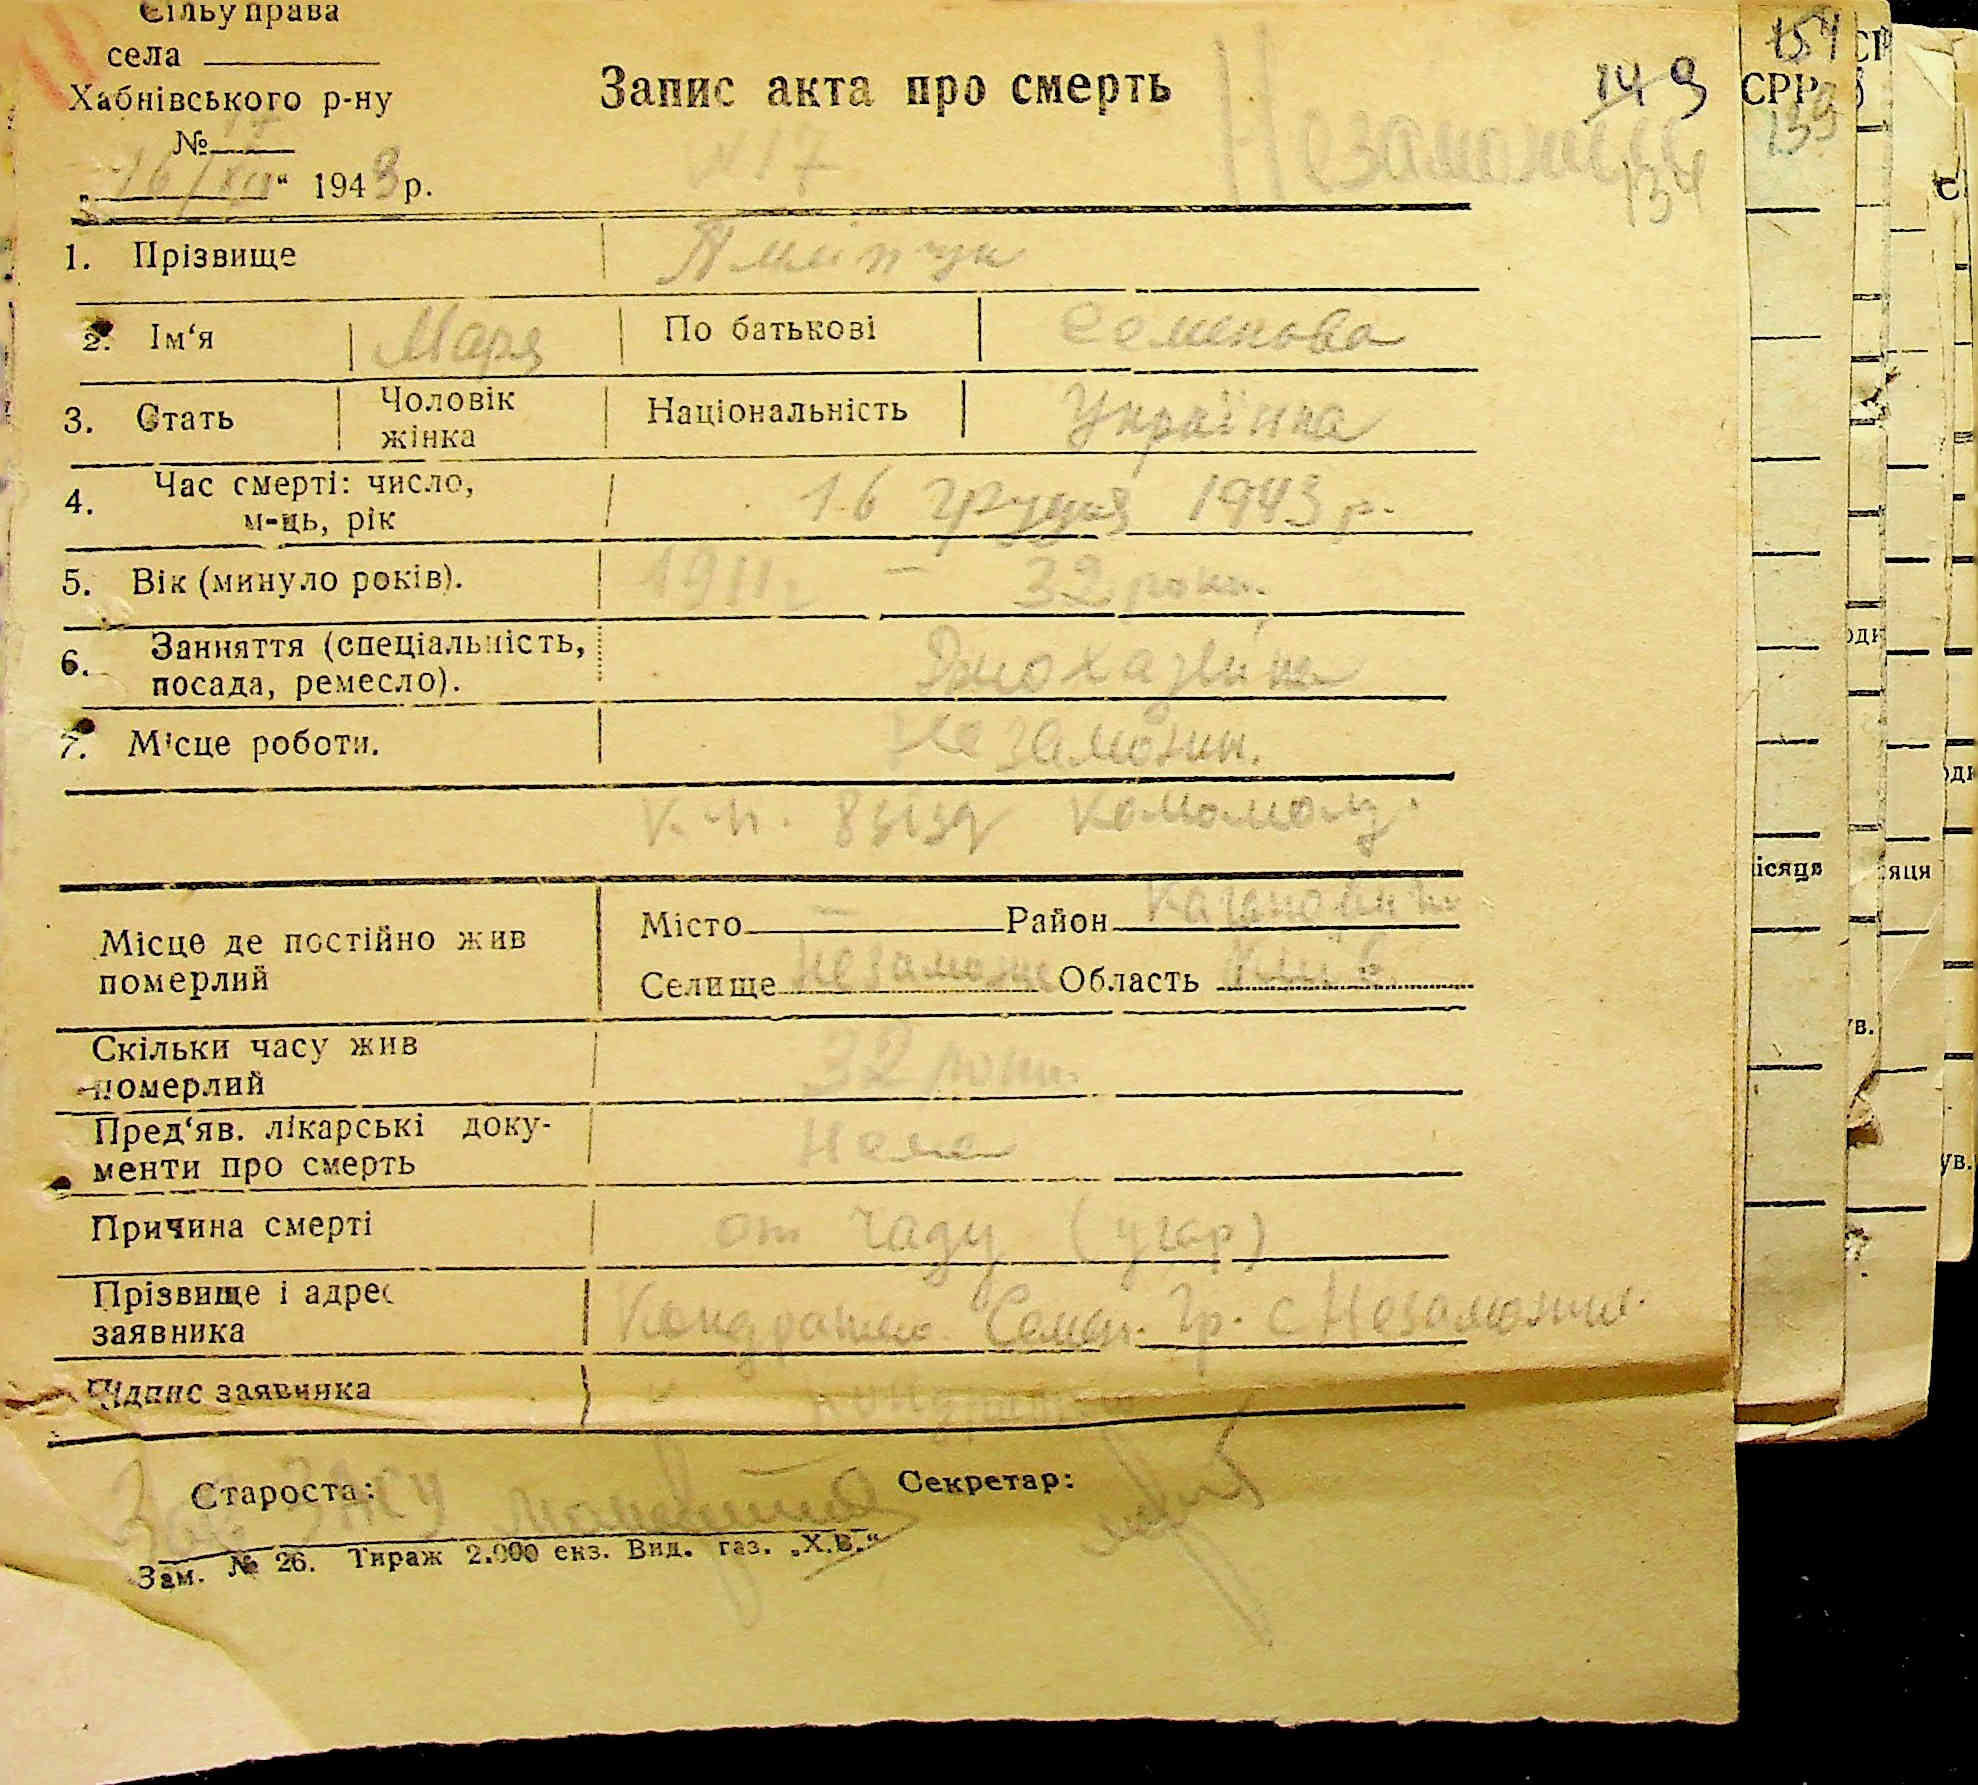 Сільуправа
села
Хабнівського р-ну
№ 17
„16/XII“ 1943 р.
Запис акта про смерть
N 17
149
134
154
СРР
139
1. Прізвище
2. Ім‘я Маря По батькові Семенова
3. Стать Чоловік жінка Національність Українка
4. Час смерті: число, м-ць, рік 16 грудня 1943 р.
5. Вік (минуло років). 1911 г – 32 роки.
6. Занняття (спеціальність, посада, ремесло).
7. Місце роботи. Незаможн.
8 зізд
Місце де постійно жив померлий
Місто — Район
Селище Незаможн Область Київ.
Скільки часу жив померлий 32 роки.
Пред‘яв. лікарські документи про смерть Нема
Причина смерті от чаду (угар)
Прізвище і адрес заявника Кондратенко Семен. Гр. с Незаможн.
Підпис заявника
Староста:
Секретар:
Зав ЗАГСу
Зам. № 26. Тираж 2.000 екз. Вид. газ. „Х.В.“
ісяця
яця
ув.